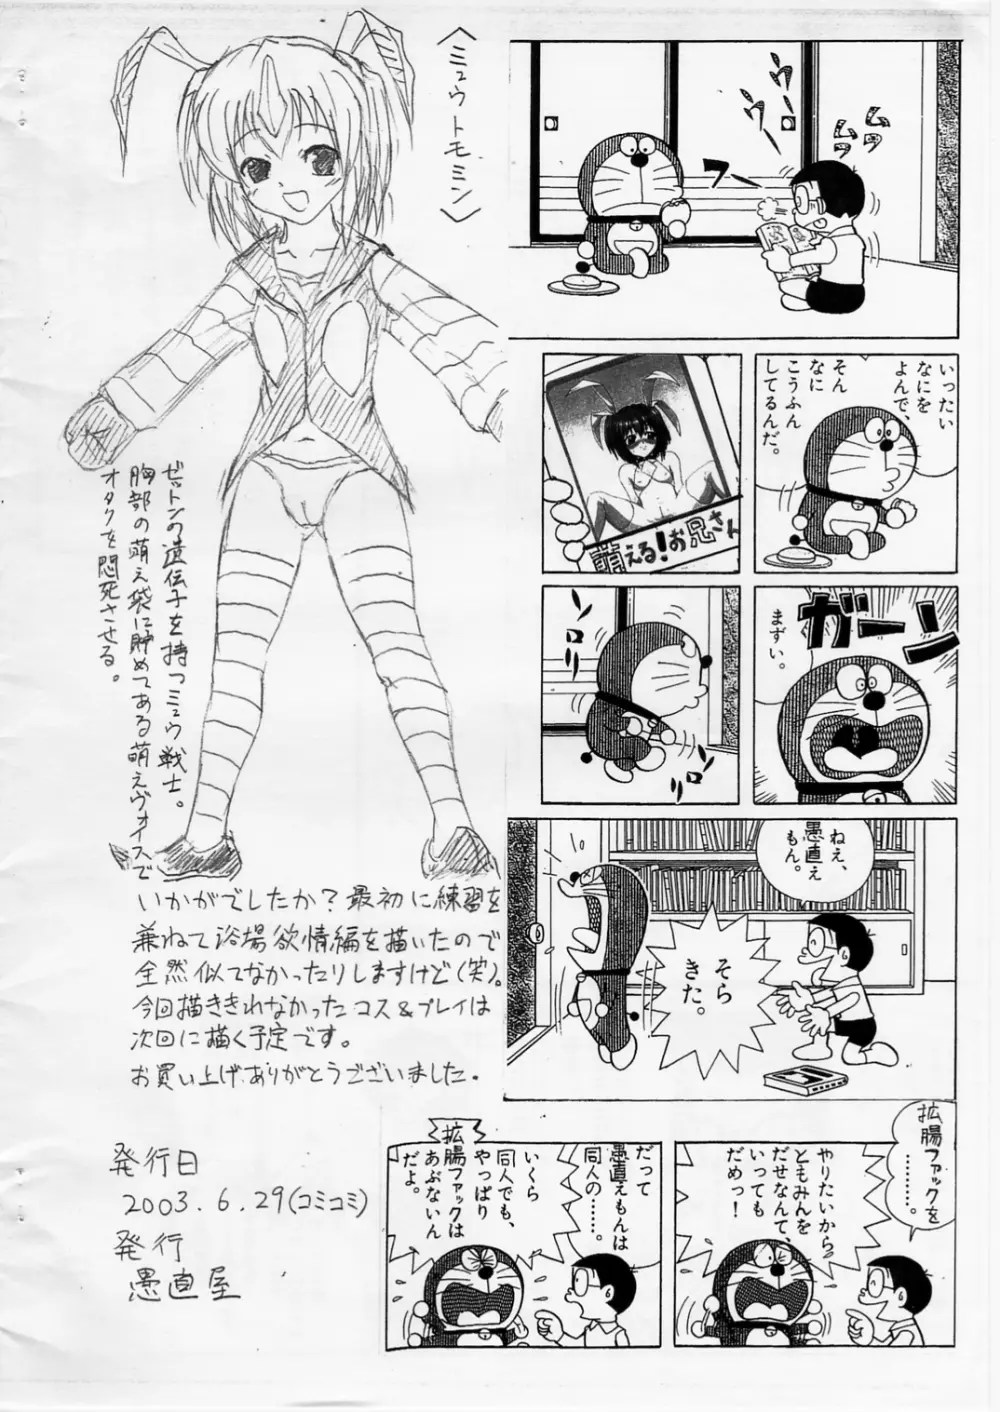 〈ミュウトモミン〉
ゼットンの遺伝子を持つミュウ戦士。
胸部の萌え袋に貯めてある萌えヴォイスで
オタクを悶死させる。
いかがでしたか?最初に練習を
兼ねて浴場欲情編を描いたので
全然似てなかったりしますけど(笑)。
今回描ききれなかったコス&プレイは
次回に描く予定です。
お買い上げありがとうございました。
発行日
2003.6.29(コミコミ)
発行
愚直屋
ムフ
ムフ
ウー
ウー
フー
いったい
なにを
よんで、
そん
なに
こうふん
してるんだ。
萌える!お兄さん
ガーン
まずい。
ソロリ
ソロリ
ねえ、
愚直え
もん。
そら
きた。
拡腸ファックを
……。
やりたいから
ともみんを
だせなんて、
いっても
だめっ!
だって
愚直えもんは
同人の……。
いくら
同人でも、
やっぱり
拡腸ファックは
あぶないん
だよ。